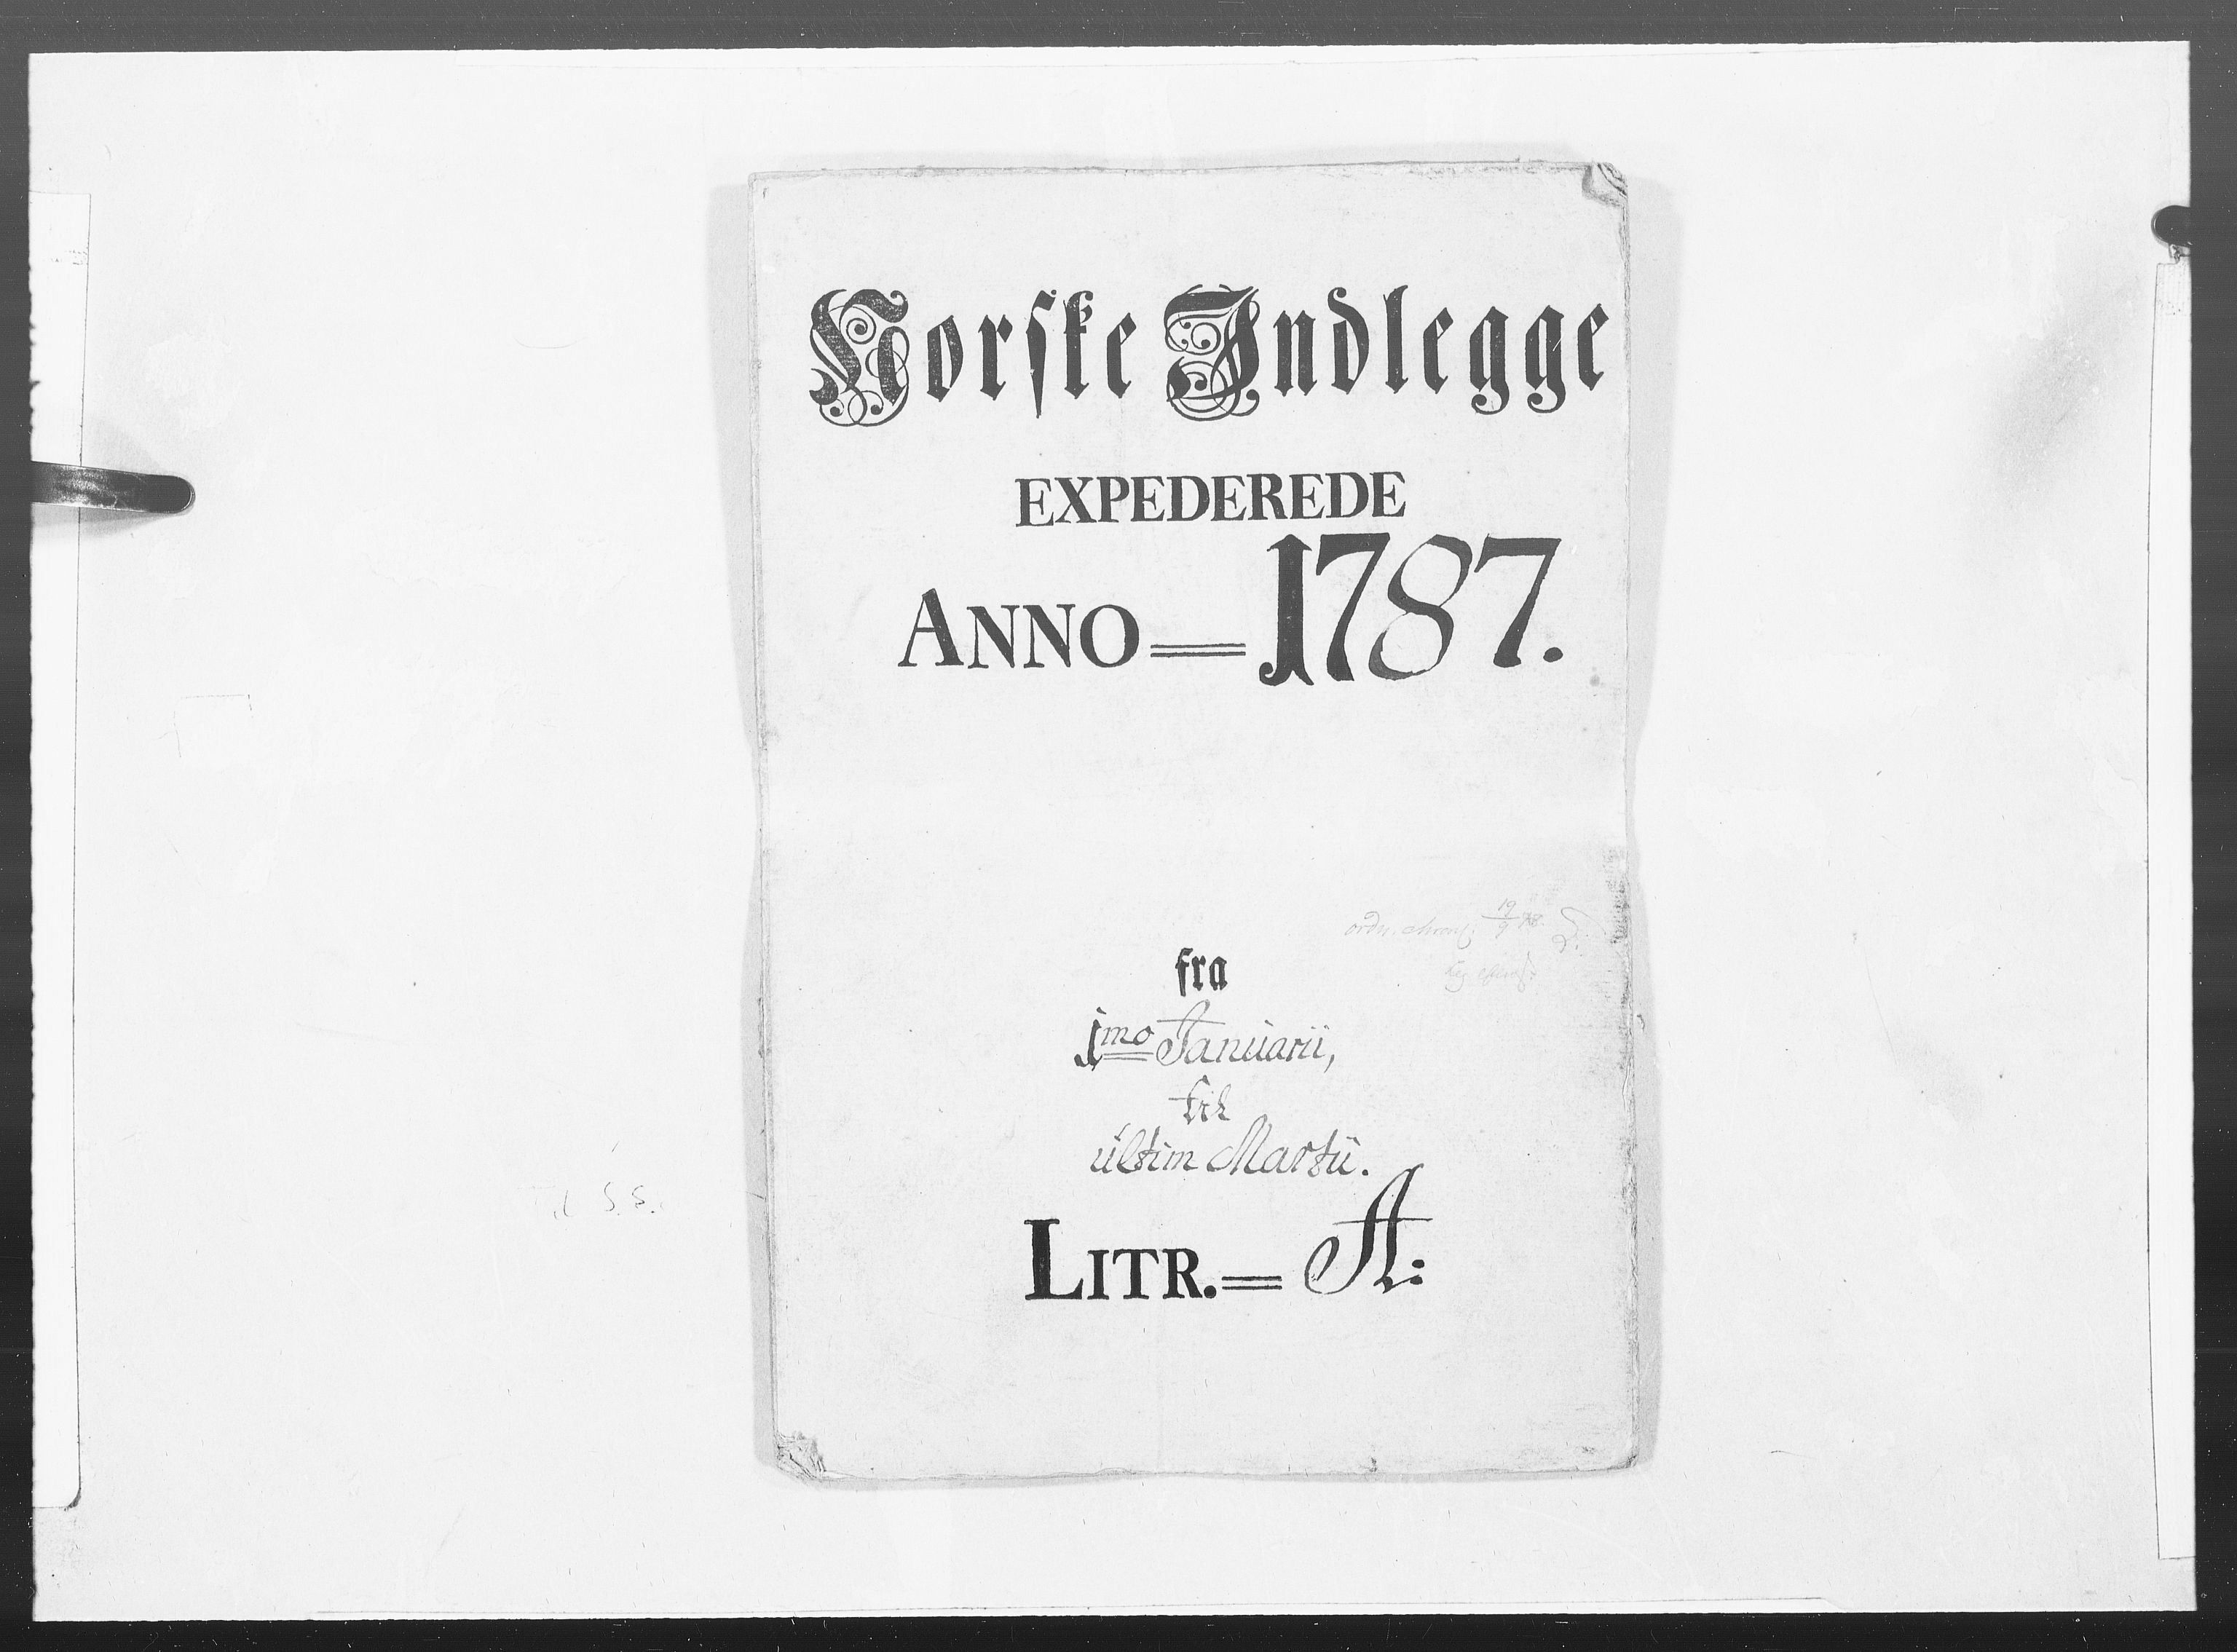 Norske Indlegge
EXPEDEREDE
ANNO = 1787.
ordn. chronol. 19/9 78.
fra
1mo Januarii,
til
ultim Martii.
LITR. = A: